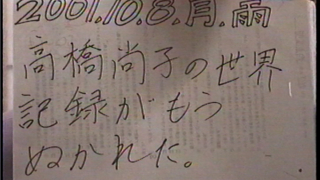 2001.10.8.月.雨
高橋尚子の世界
記録がもう
ぬかれた。